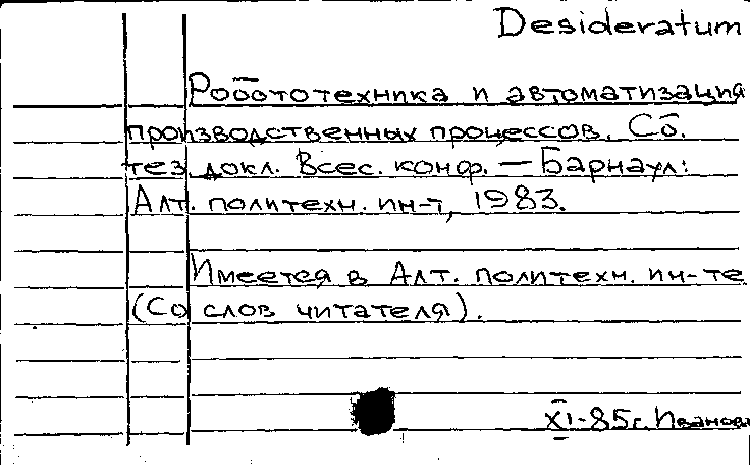 Desideratum
Робототехника и автоматизация
производственных процессов. Сб.
тез. докл. Всес. конф. — Барнаул:
Алт. политехн. ин-т, 1983.
Имеется в Алт. политехн. ин-те
(Со слов читателя).
XI-85г. Иванова